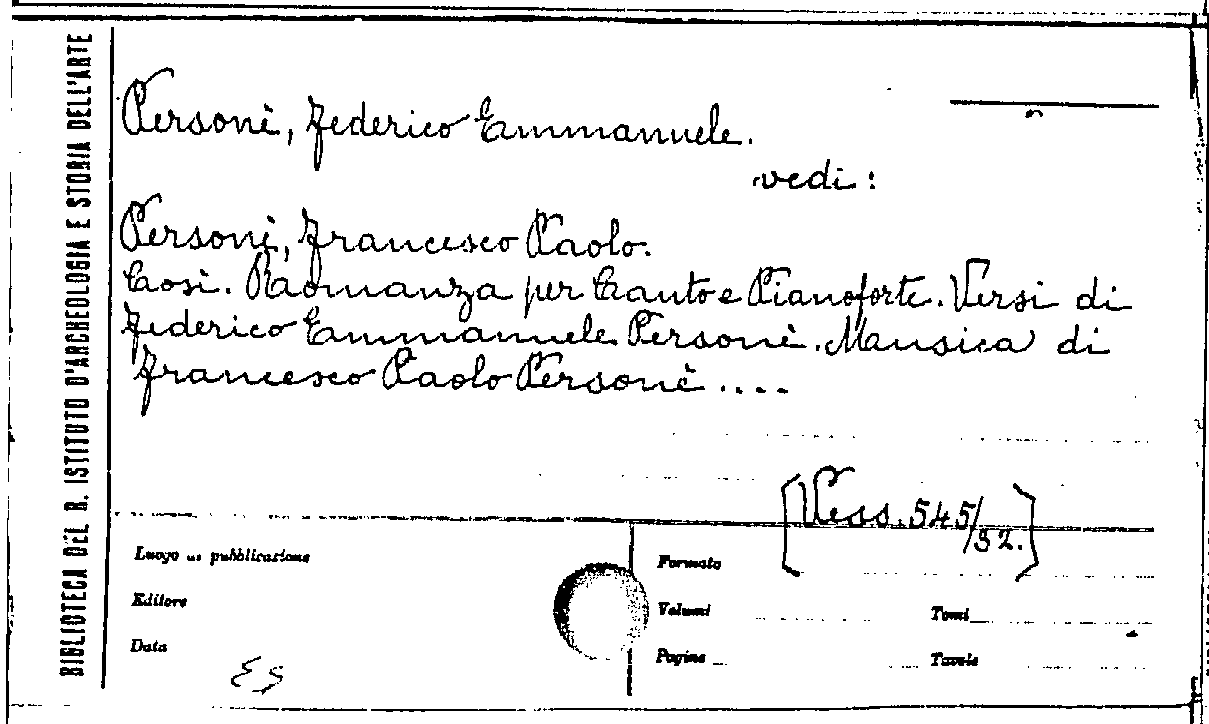 BIBLIOTECA DEL R. ISTITUTO D'ARCHEOLOGIA E STORIA DELL'ARTE
Personè, Federico Emmanuele.
vedi:
Personè, Francesco Paolo.
Così. Romanza per Canto e Pianoforte. Versi di
Federico Emmanuele Personè. Musica di
Francesco Paolo Personè....
[Vess. 545/32.]
Luogo di pubblicazione
Formato
Editore
Volumi
Tomi
Data
Pagine
Tavole
ES